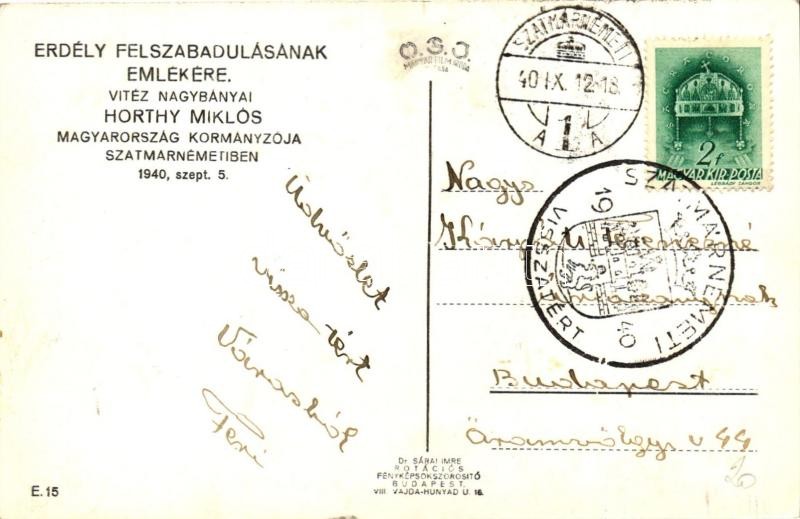 ERDÉLY FELSZABADULÁSÁNAK
EMLÉKÉRE.
VITÉZ NAGYBÁNYAI
HORTHY MIKLÓS
MAGYARORSZÁG KORMÁNYZÓJA
SZATMÁRNÉMETIBEN
1940, szept. 5.
O.S.J.
SZATMÁRNÉMETI
40 IX. 12-18
1
A A
2f
MAGYAR KIR. POSTA
LÉGRÁDY SÁNDOR
SZATMÁRNÉMETI
VISSZATÉRT
19 40
Üdvözlet
vissza tért
Városból
Feri
Nagys
Budapest
Áramvölgy u 44
E.15
Dr SÁRAI IMRE
ROTÁCIÓS
FÉNYKÉPSOKSZOROSITÓ
BUDAPEST,
VIII. VAJDA-HUNYAD U. 16.